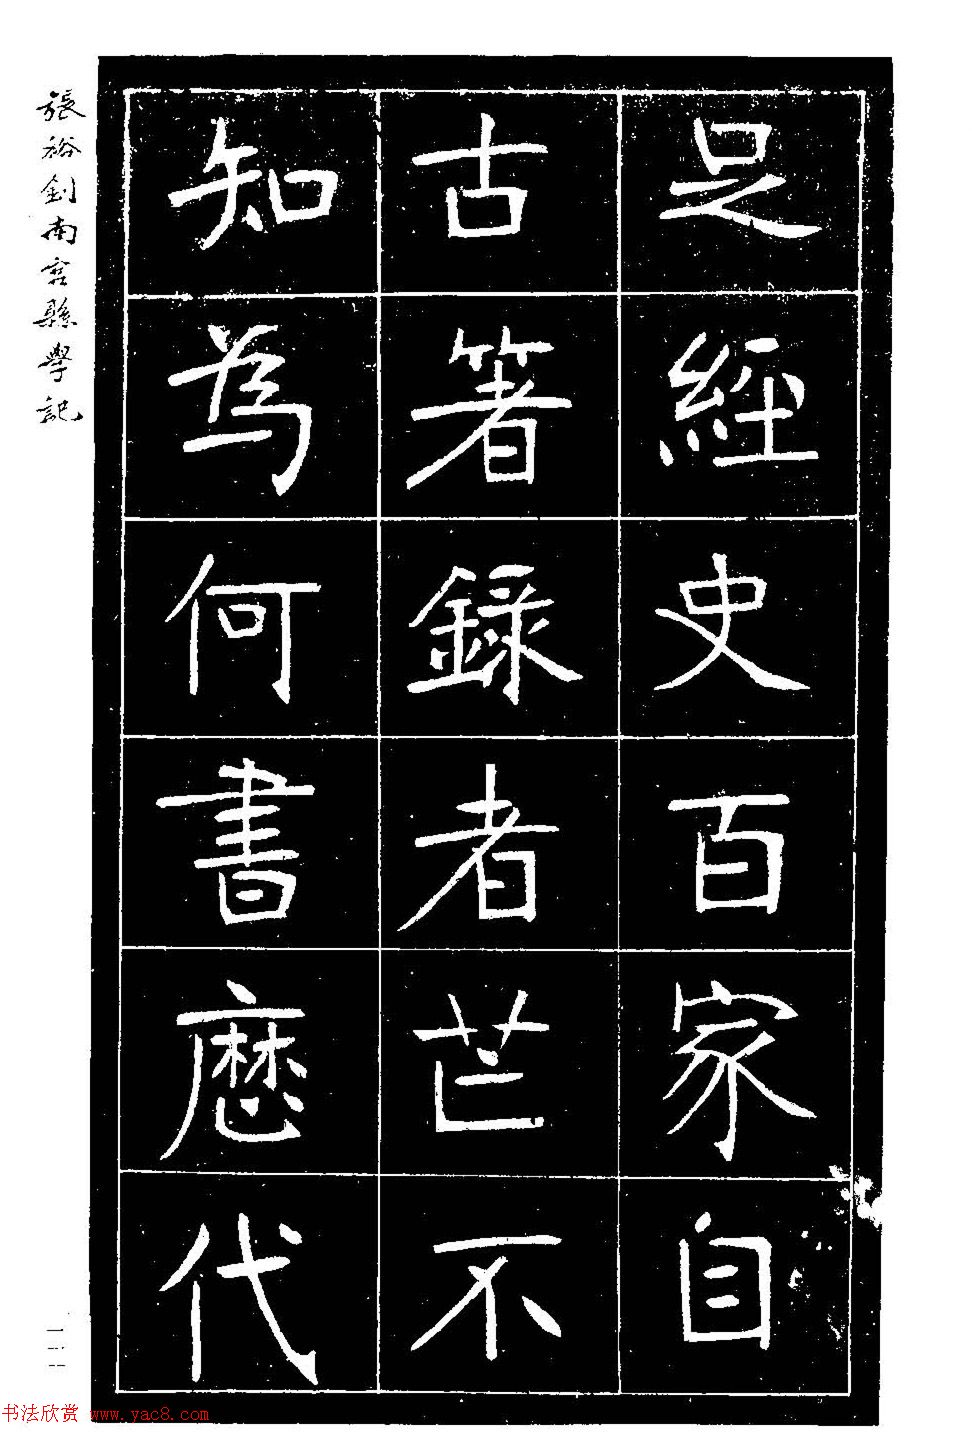 足經史百家自
古著錄者芒不
知為何書歷代
張裕釗南宮縣學記
一二
书法欣赏 www.yac8.com